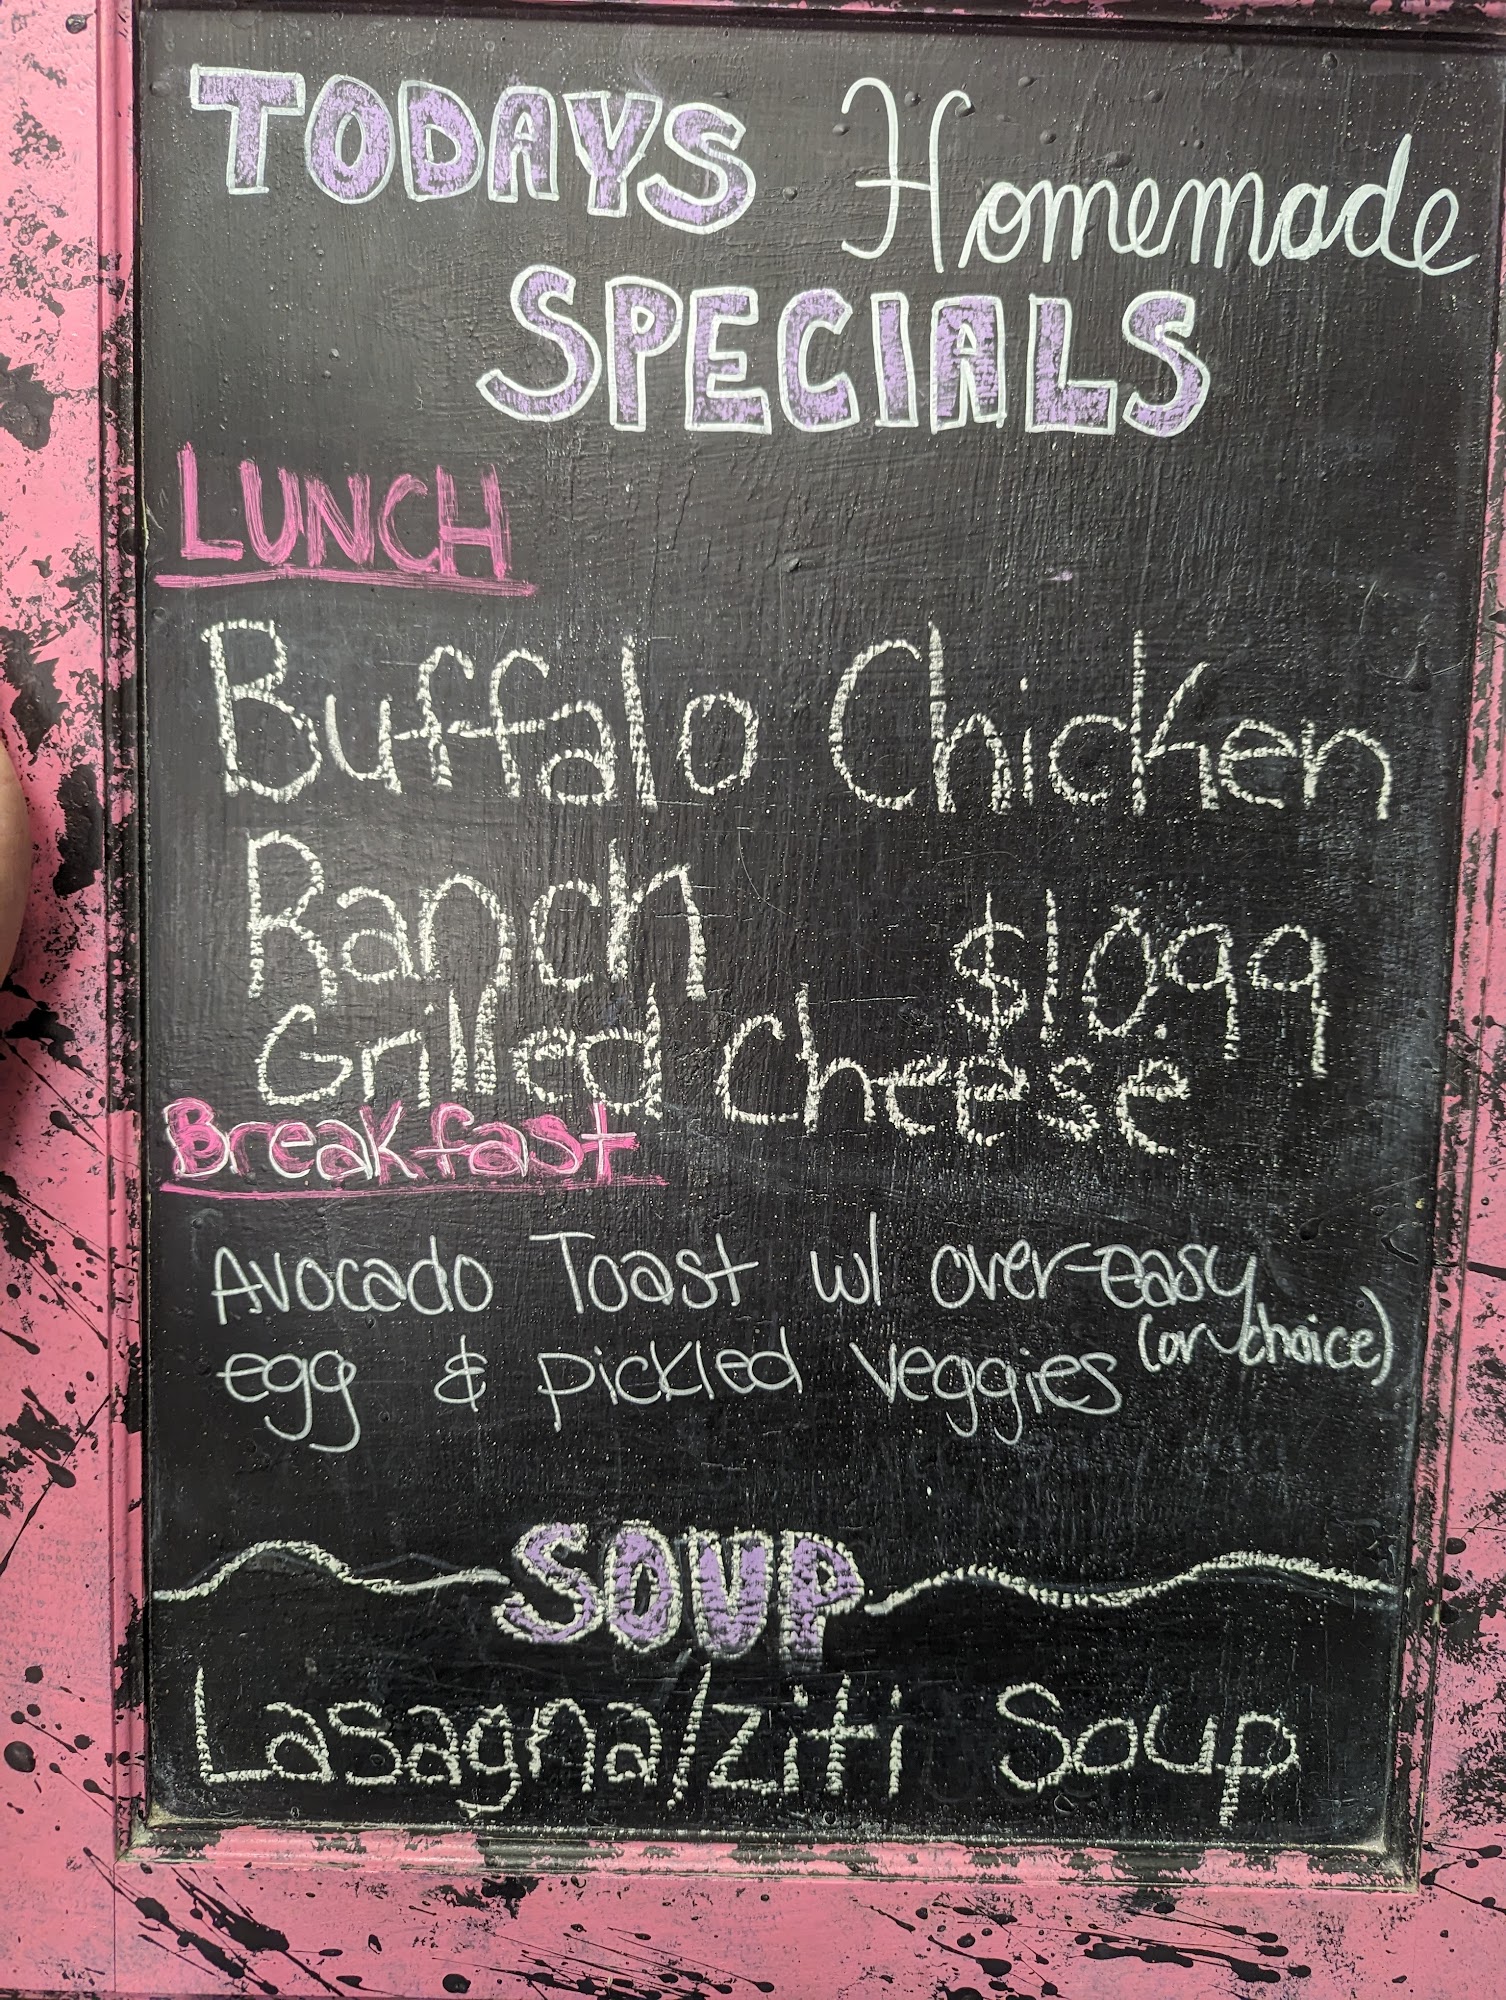 TODAYS Homemade
SPECIALS
LUNCH
Buffalo Chicken
Ranch $10.99
Grilled Cheese
Breakfast
Avocado Toast w/ over-easy
(or choice)
egg & pickled veggies
SOUP
Lasagna/ziti Soup